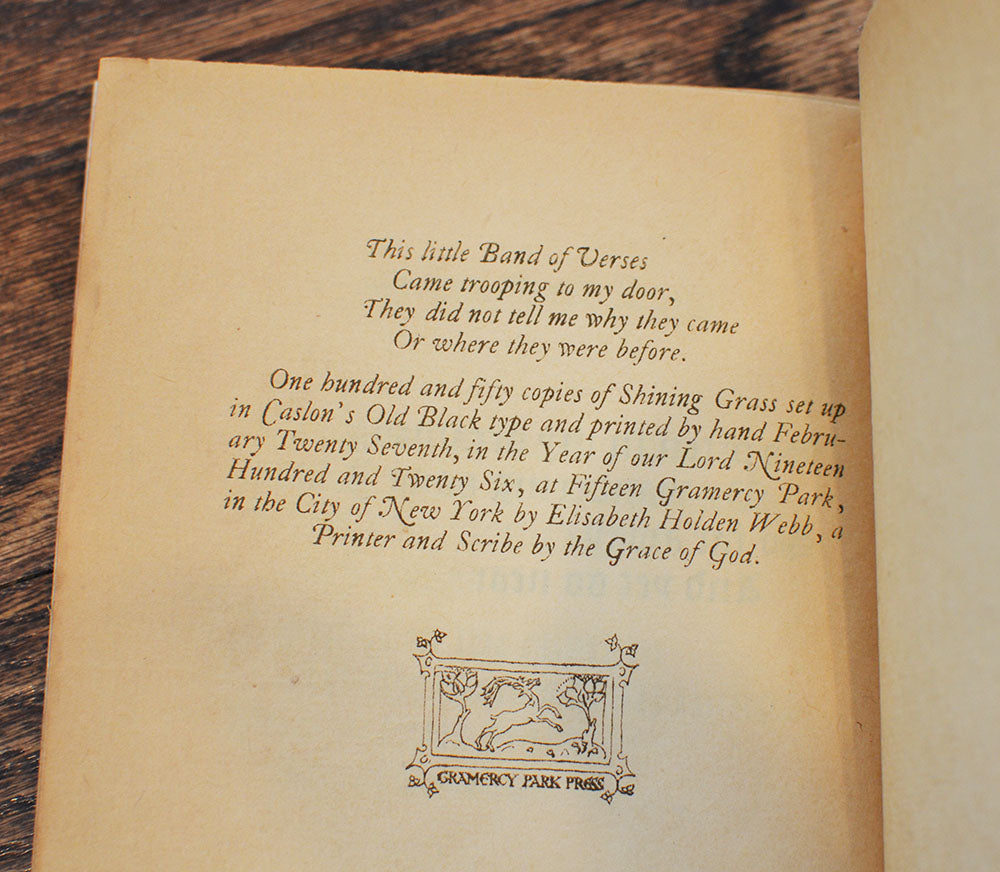 This little Band of Verses
Came trooping to my door,
They did not tell me why they came
Or where they were before.
One hundred and fifty copies of Shining Grass set up
in Caslon's Old Black type and printed by hand Febru-
ary Twenty Seventh, in the Year of our Lord Nineteen
Hundred and Twenty Six, at Fifteen Gramercy Park,
in the City of New York by Elisabeth Holden Webb, a
Printer and Scribe by the Grace of God.
GRAMERCY PARK PRESS